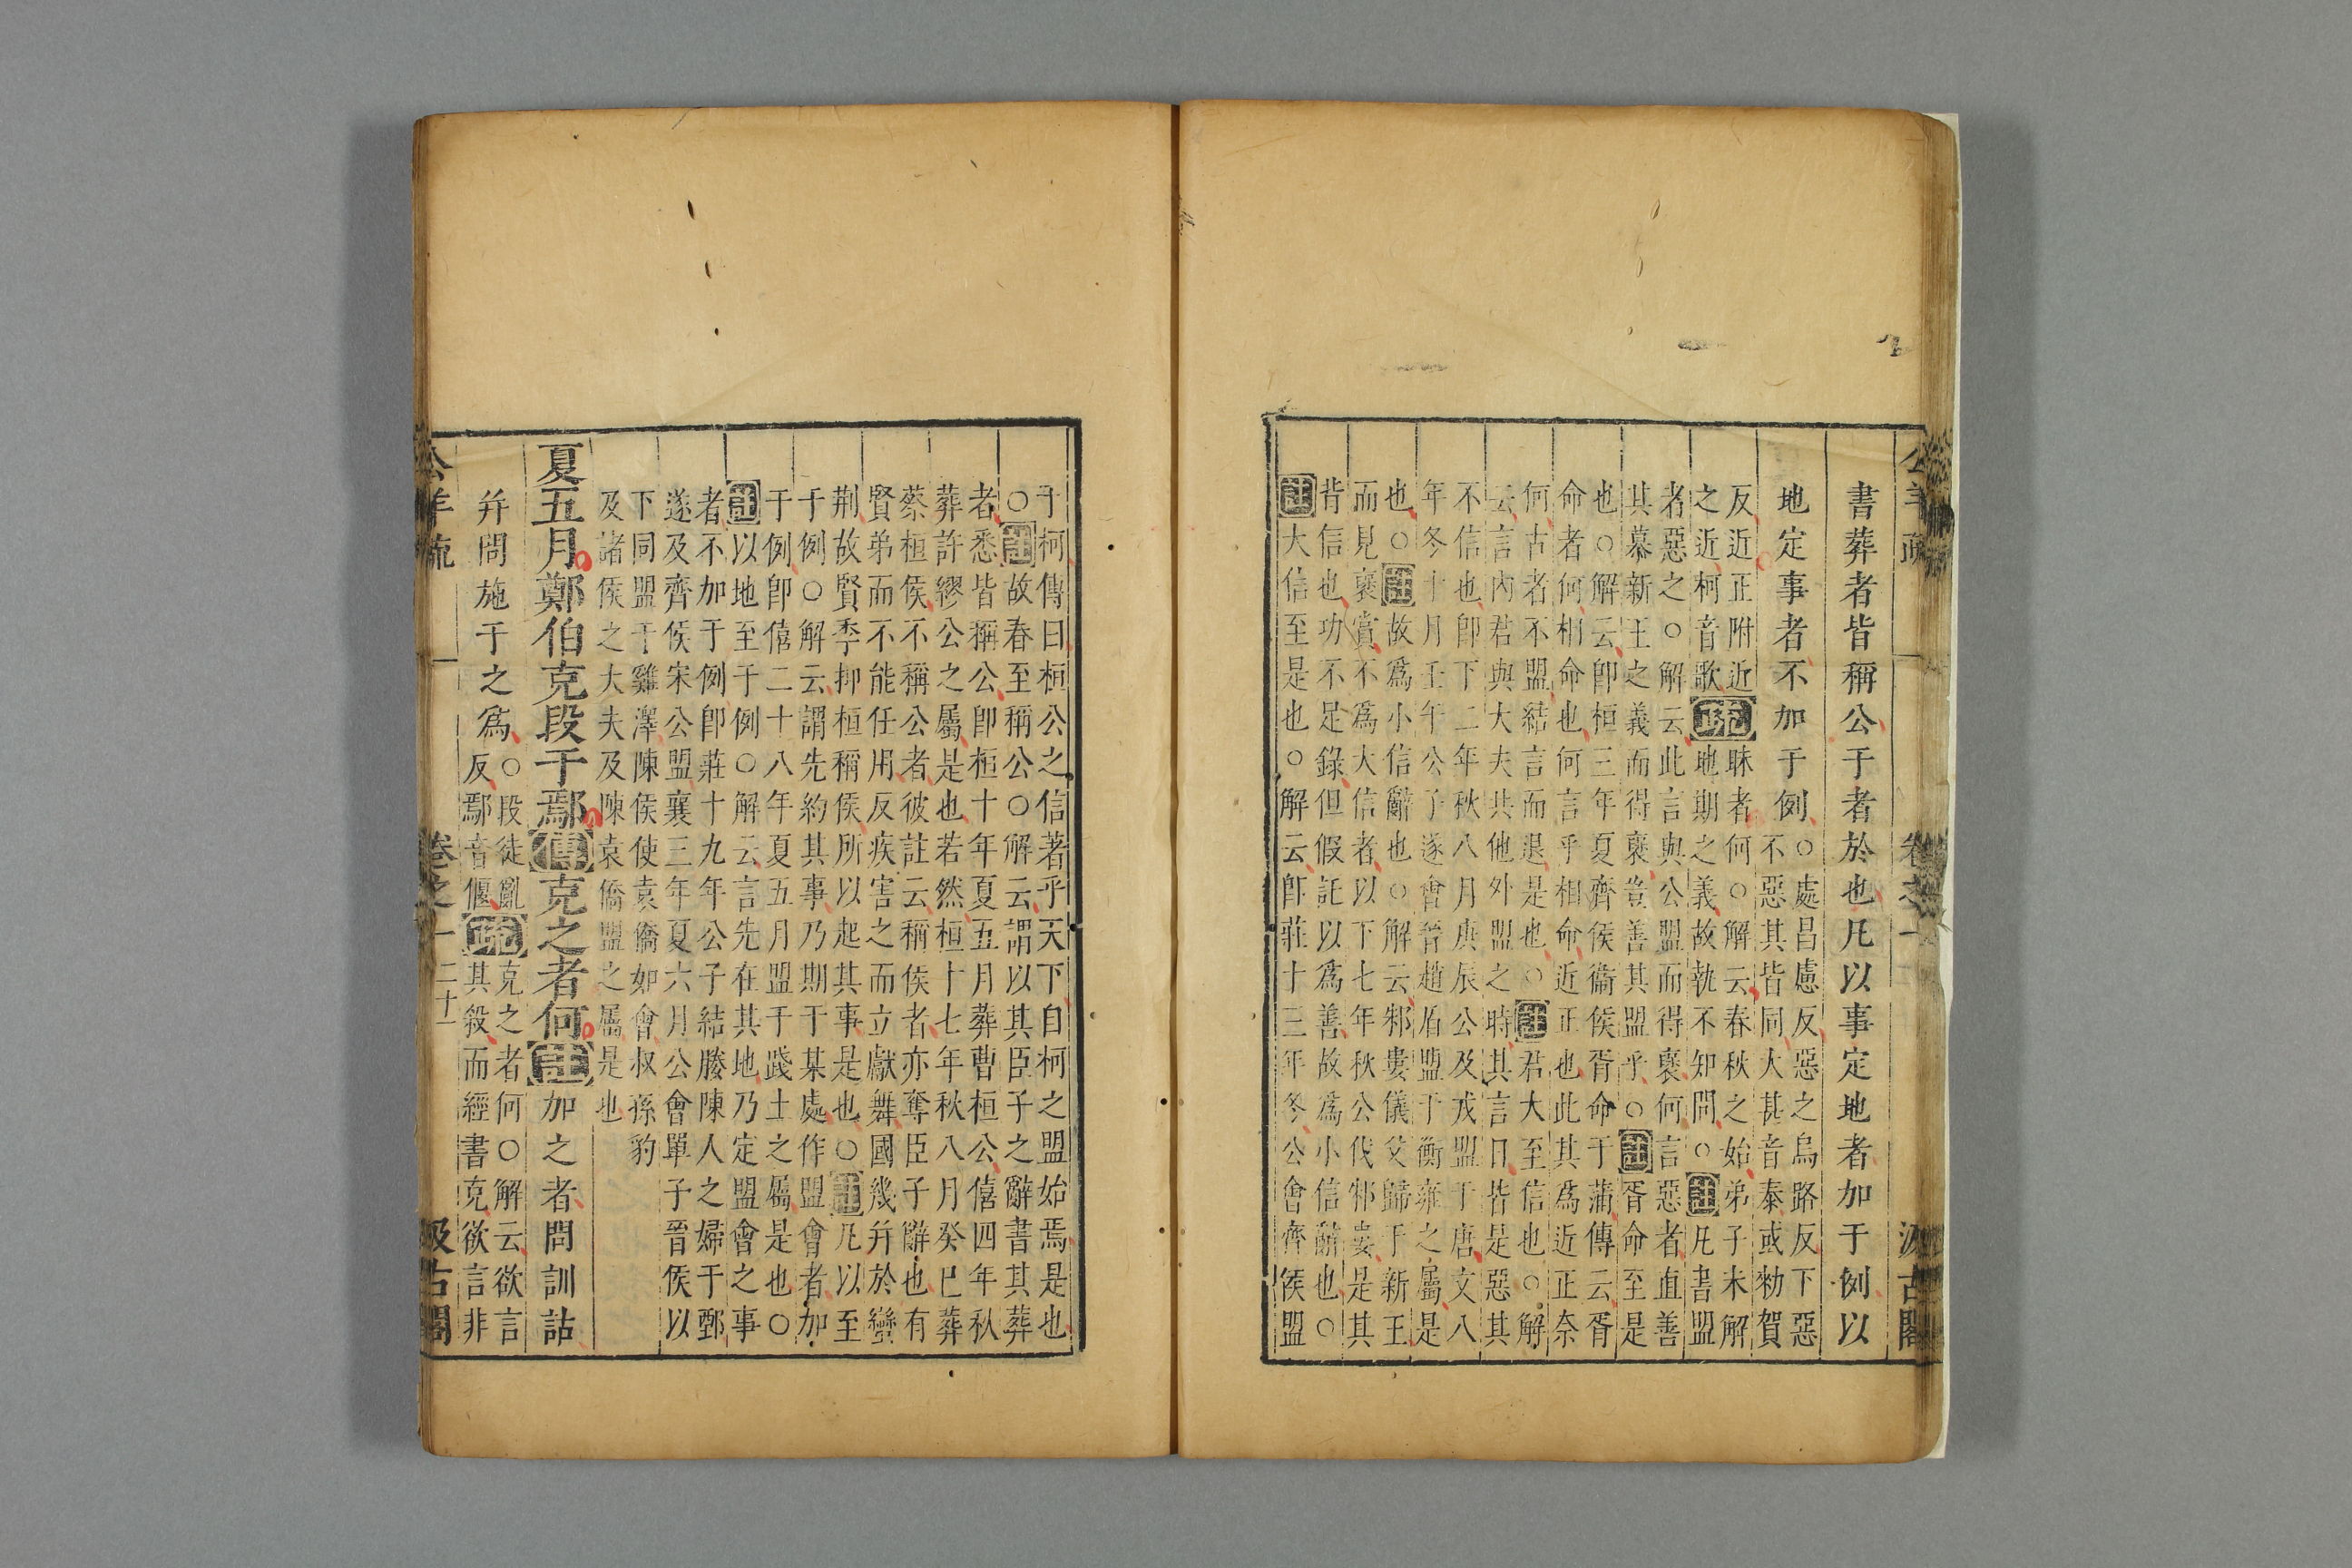 公羊疏 卷之一 汲古閣
書葬者皆稱公于者於也凡以事定地者加于例以
地定事者不加于例○處昌慮反惡之烏路反下惡
不惡其皆同大甚音泰或勑賀
反近正附近昧者何○解云春秋之始弟子未解
之近柯音歌疏地期之義故執不知問○註凡書盟
者惡之○解云此言與公盟而得褒何言惡者直善
其慕新王之義而得褒豈善其盟乎○註胥命至是
也○解云卽桓三年夏齊侯衞侯胥命于蒲傳云胥
命者何相命也何言乎相命近正也此其爲近正奈
何古者不盟結言而退是也○註君大至信也○解
云言內君與大夫共他外盟之時其言日皆是惡其
不信也卽下二年秋八月庚辰公及戎盟于唐文八
年冬十月壬午公子遂會晉趙盾盟于衡雍之屬是
也○註故爲小信辭也○解云邾婁儀父歸于新王
而見褒賞不爲大信者以下七年秋公伐邾婁是其
背信也功不足錄但假託以爲善故爲小信辭也○
註大信至是也○解云卽莊十三年冬公會齊侯盟
于柯傳曰桓公之信著乎天下自柯之盟始焉是也
○註故春至稱公○解云謂以其臣子之辭書其葬
者悉皆稱公卽桓十年夏五月葬曹桓公僖四年秋
葬許繆公之屬是也若然桓十七年秋八月癸巳葬
蔡桓侯不稱公者彼註云稱侯者亦奪臣子辭也有
賢弟而不能任用反疾害之而立獻舞國幾并於蠻
荆故賢季抑桓稱侯所以起其事是也○註凡以至
于例○解云謂先約其事乃期于某處作盟會者加
于例卽僖二十八年夏五月盟于踐土之屬是也○
註以地至于例○解云言先在其地乃定盟會之事
者不加于例卽莊十九年公子結媵陳人之婦于鄄
遂及齊侯宋公盟襄三年夏六月公會單子晉侯以
下同盟于雞澤陳侯使袁僑如會叔孫豹
及諸侯之大夫及陳袁僑盟之屬是也
夏五月鄭伯克段于鄢傳克之者何註加之者問訓詁
并問施于之爲○段徒亂
反鄢音偃疏克之者何○解云欲言
其殺而經書克欲言非
公羊疏 卷之一 二十一 汲古閣